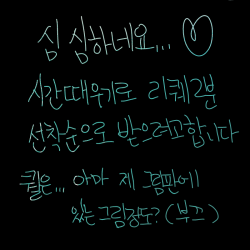 심심하네요... ♡
시간때우기로 리퀘2분
선착순으로 받으려고합니다
퀄은... 아마 제 그림판에
있는 그림정도? (부끄)